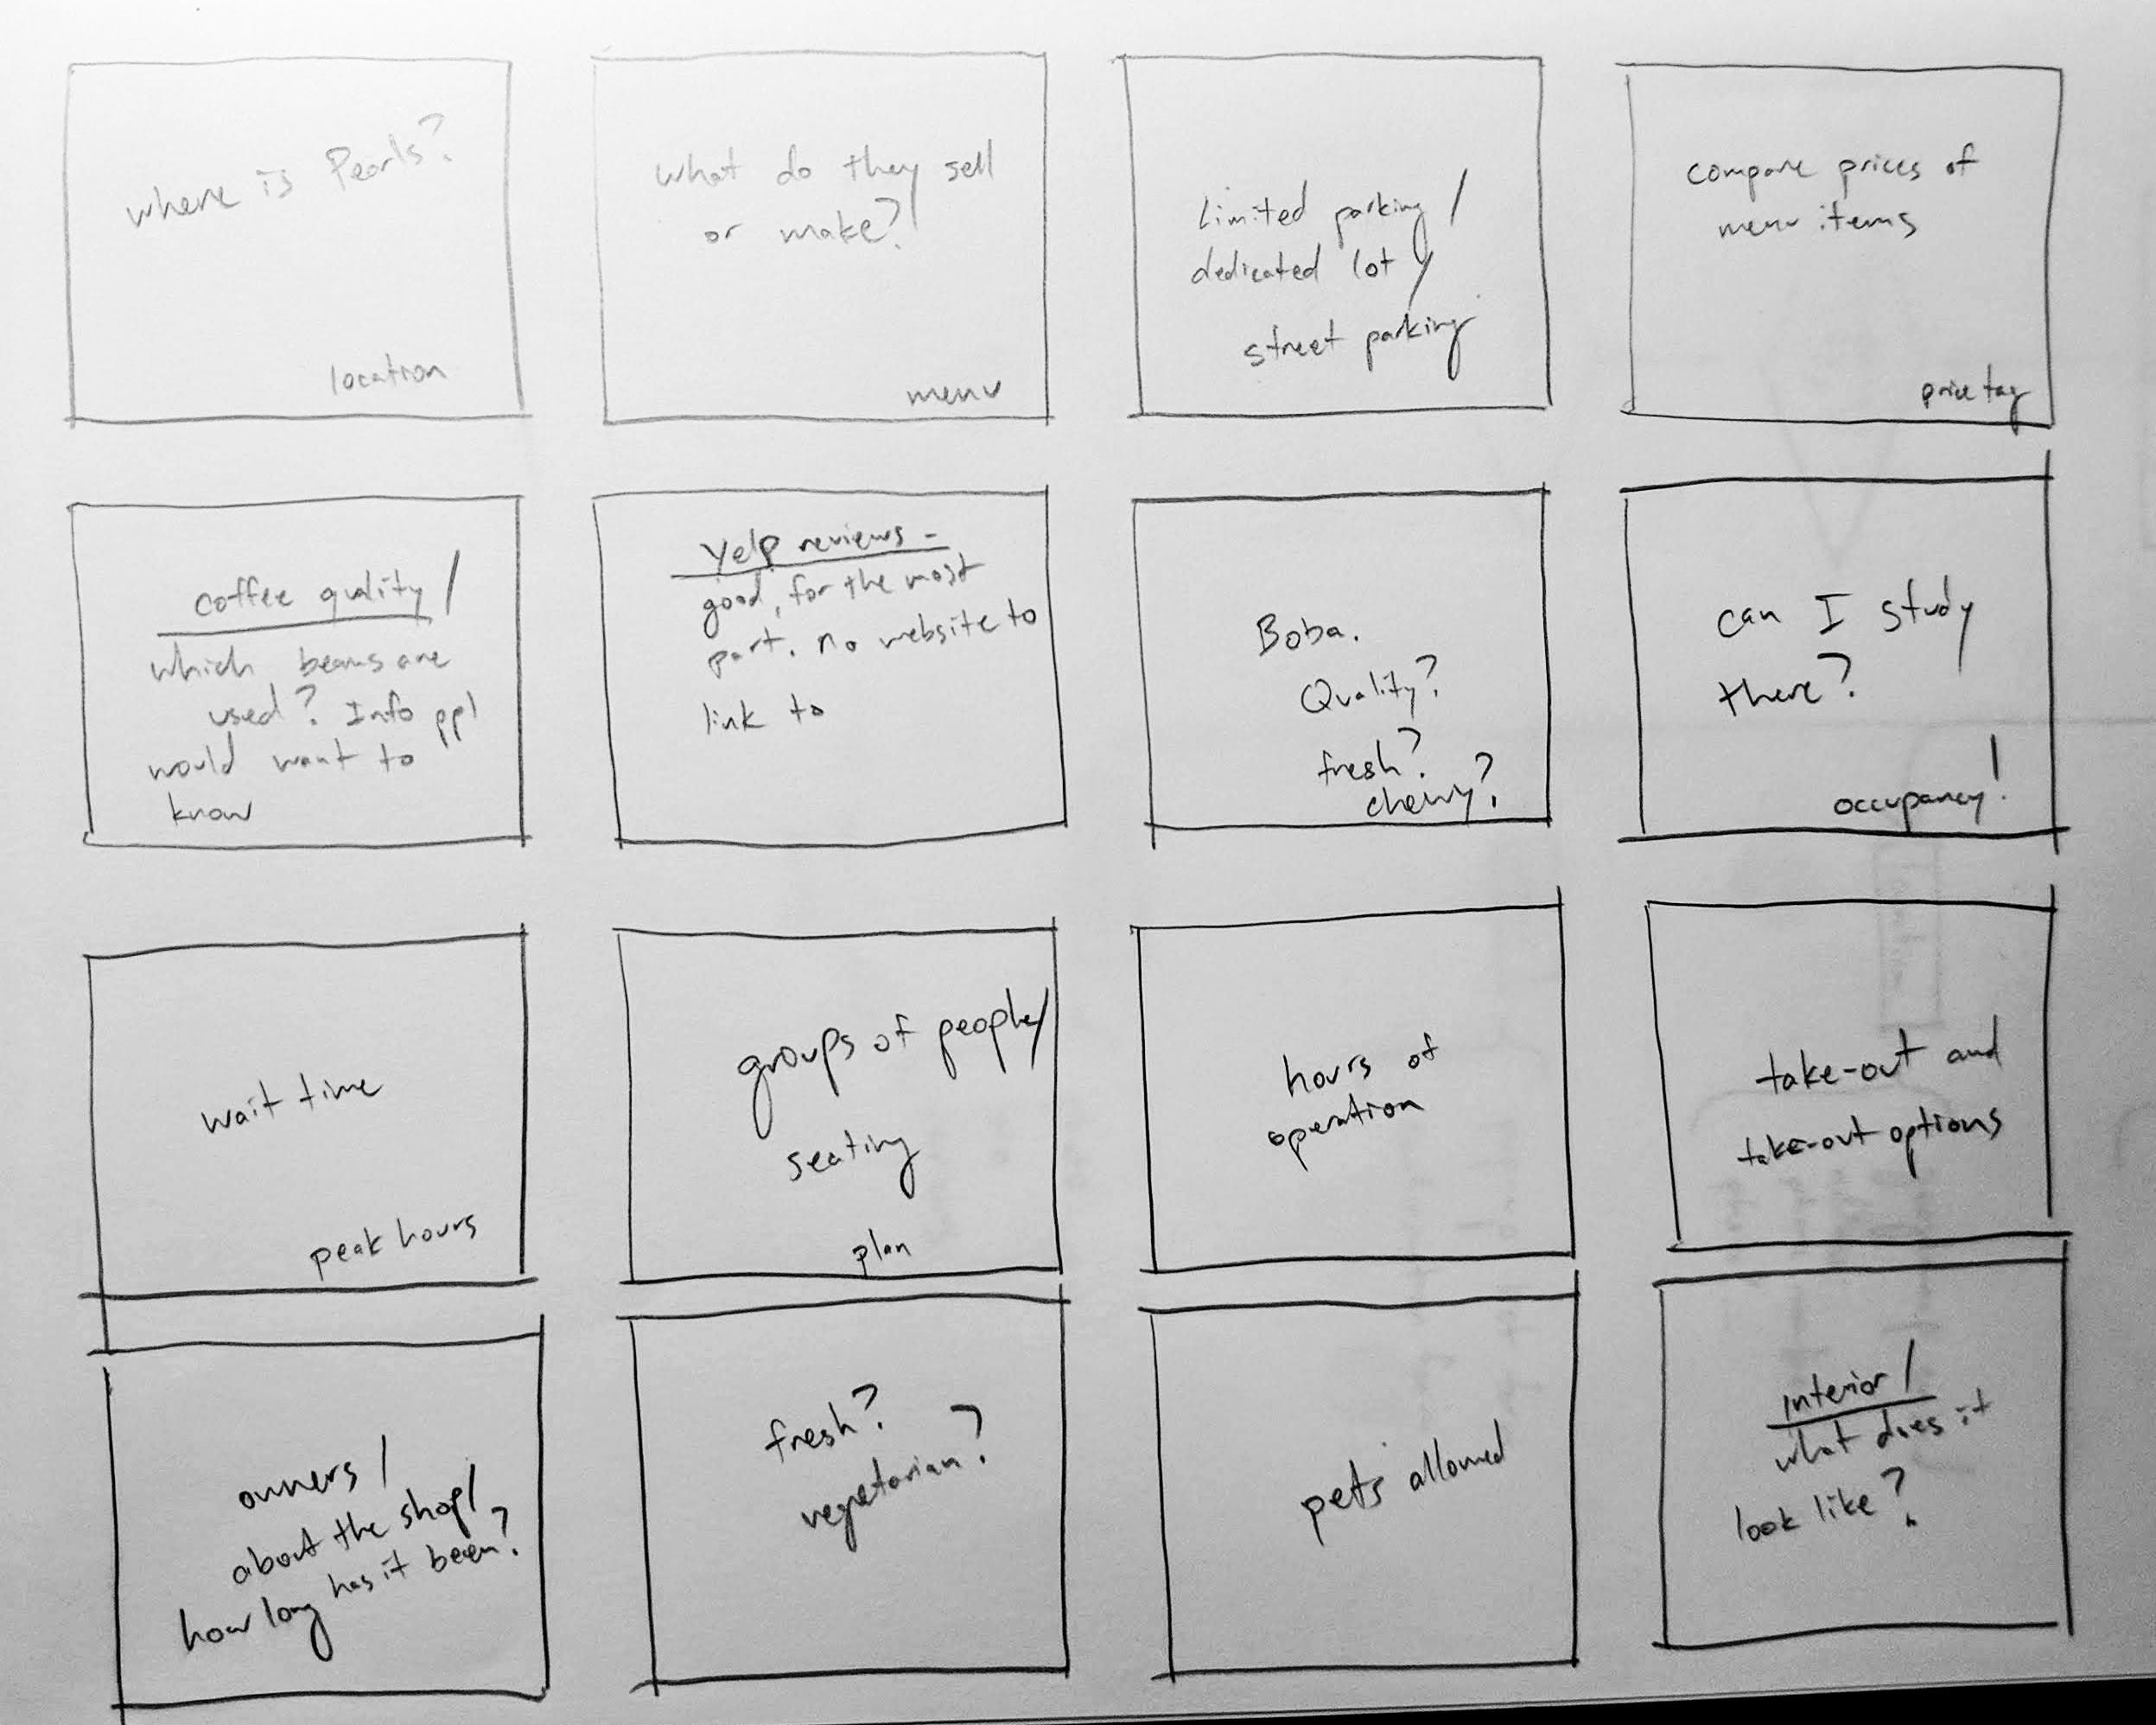 where is Pearls?
location
what do they sell
or make?
menu
Limited parking /
dedicated lot /
street parking
compare prices of
menu items
price tag
coffee quality /
which beans are
used? Info ppl
would want to
know
Yelp reviews -
good, for the most
part. no website to
link to
Boba.
Quality?
fresh?
chewy?
can I study
there?
occupancy!
wait time
peak hours
groups of people/
seating
plan
hours of
operation
take-out and
take-out options
owners /
about the shop/
how long has it been?
fresh?
vegetarian?
pets allowed
interior /
what does it
look like?